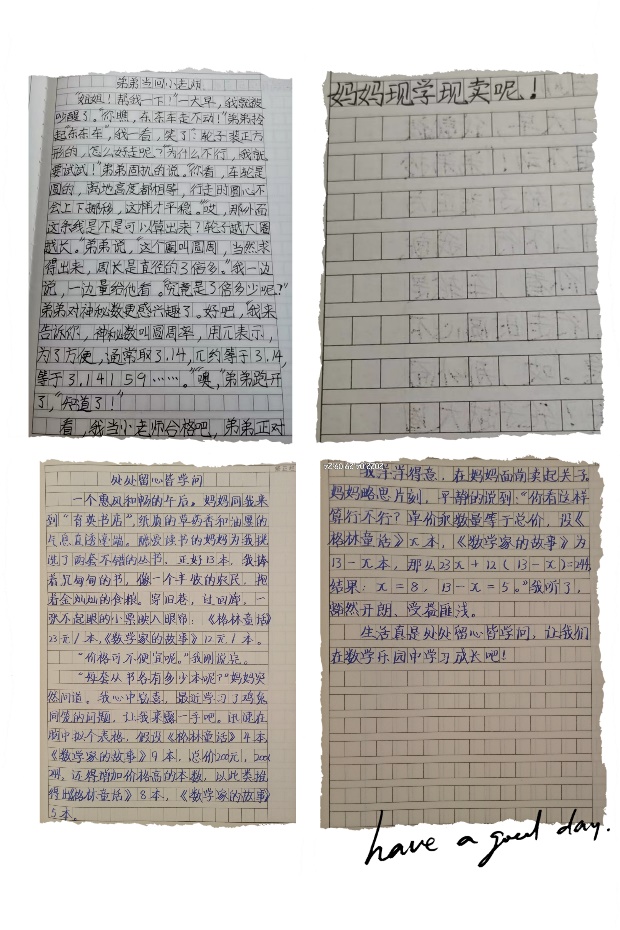 弟弟当回小老师
"姐姐！帮我一下！"一大早，我就被
吵醒了。"你瞧，东东车走不动！"弟弟拎
起"东东车"，我一看，笑了：轮子装正方
形的，怎么好走呢？"为什么不行，我就
要试试！"弟弟固执的说。"你看，车轮是
圆的，离地高度都相等，行走时圆心不
会上下挪移，这样才平稳。"哎，那外面
这条线是不是可以算出来？轮子越大圈
越长。"弟弟说，"这个圈叫圆周，当然求
得出来，周长是直径的3倍多。"我一边
说，一边量给他看。"究竟是3倍多少呢？"
弟弟对神秘数更感兴趣了。好吧，"我来
告诉你，神秘数叫圆周率，用兀表示，
为了方便，通常取3.14，兀约等于3.14，
等于3.14159……。""噢，"弟弟跑开
了，"知道了！"
看，我当小老师合格吧，弟弟正对
妈妈现学现卖呢！
处处留心皆学问
一个惠风和畅的午后。妈妈同我来
到"有英书店"，纸质的草药香和油墨的
气息直透毫端。酷爱读书的妈妈为我挑
选了两套不错的丛书，正好13本，我捧
着沉甸甸的书，像一个丰收的农民，抱
着金灿灿的食粮。穿旧巷，过回廊。一
张不起眼的小票映入眼帘：《格林童话》
23元/本，《数学家的故事》12元/本。
"价格可不便宜呢。"我刚说完。
"每套丛书各有多少本呢？"妈妈突
然问道。我心中窃喜，最近学习了鸡兔
同笼的问题，让我来露一手吧。迅速在
脑中拟个表格，假设《格林童话》4本
《数学家的故事》9本，总价200元，200<
244，还得增加价格高的本数，以此类推
得出《格林童话》8本，《数学家的故事》
5本。
我洋洋得意，在妈妈面前卖起关子，
妈妈略思片刻，平静的说到："你看这样
算行不行？单价乘数量等于总价，设《
格林童话》x本，《数学家的故事》为
13－x本，那么23x＋12（13－x）＝244，
结果：x＝8，13－x＝5。"我听了，
豁然开朗、受益匪浅。
生活真是处处留心皆学问，让我们
在数学乐园中学习成长吧！
have a good day.